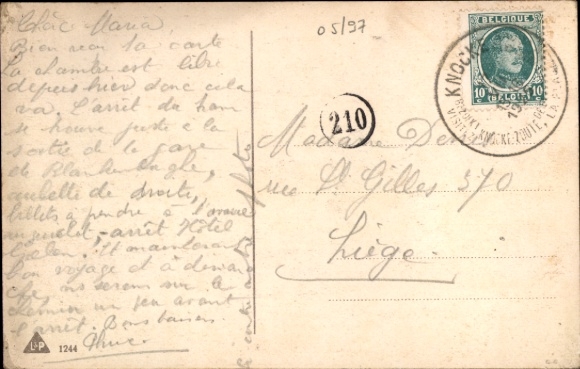 Chère Maria
Bien reçu ta carte
la chambre est libre
depuis hier donc cela
va. L'arrêt du tram
se trouve juste à la
sortie de la gare
de Blankenberghe,
aubette de droite,
billets à prendre à
guichet, arrêt Hôtel
Et maintenant
bon voyage et à
ns serons sur le
chemin un peu avant
l'arrêt. Bons baisers
05/97
210
Madame
rue St Gilles 370
Liège
BELGIQUE
10c 10c
BELGIË
KNOCKE
KNOCKE-ZOUTE, LA PLAGE
L&P 1244